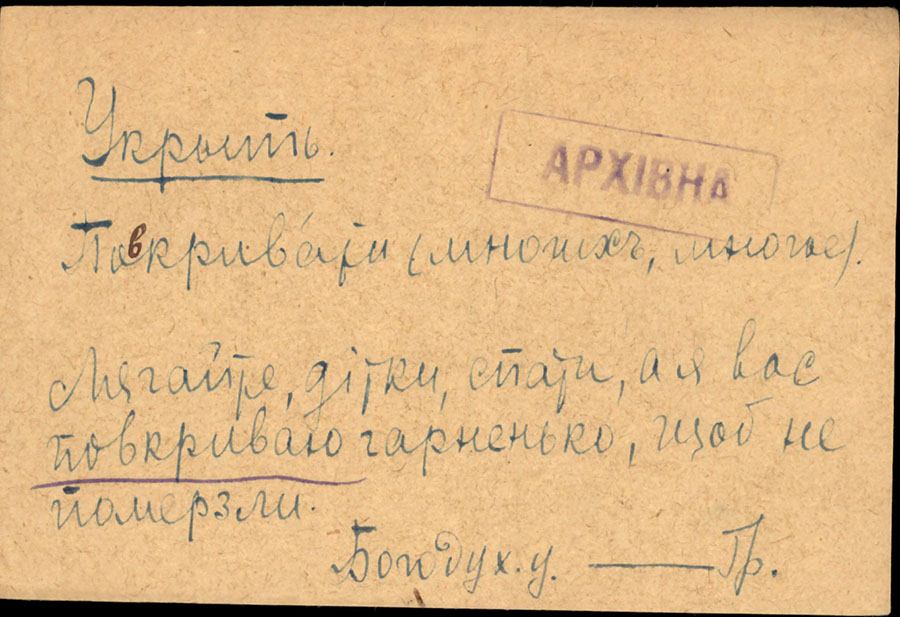 Укрыть.
АРХІВНА
Повкрива́ти (многихъ, многое).
Лягайте, дітки, спати, а я вас
повкриваю гарненько, щоб не
померзли.
Богодух. у. — Гр.